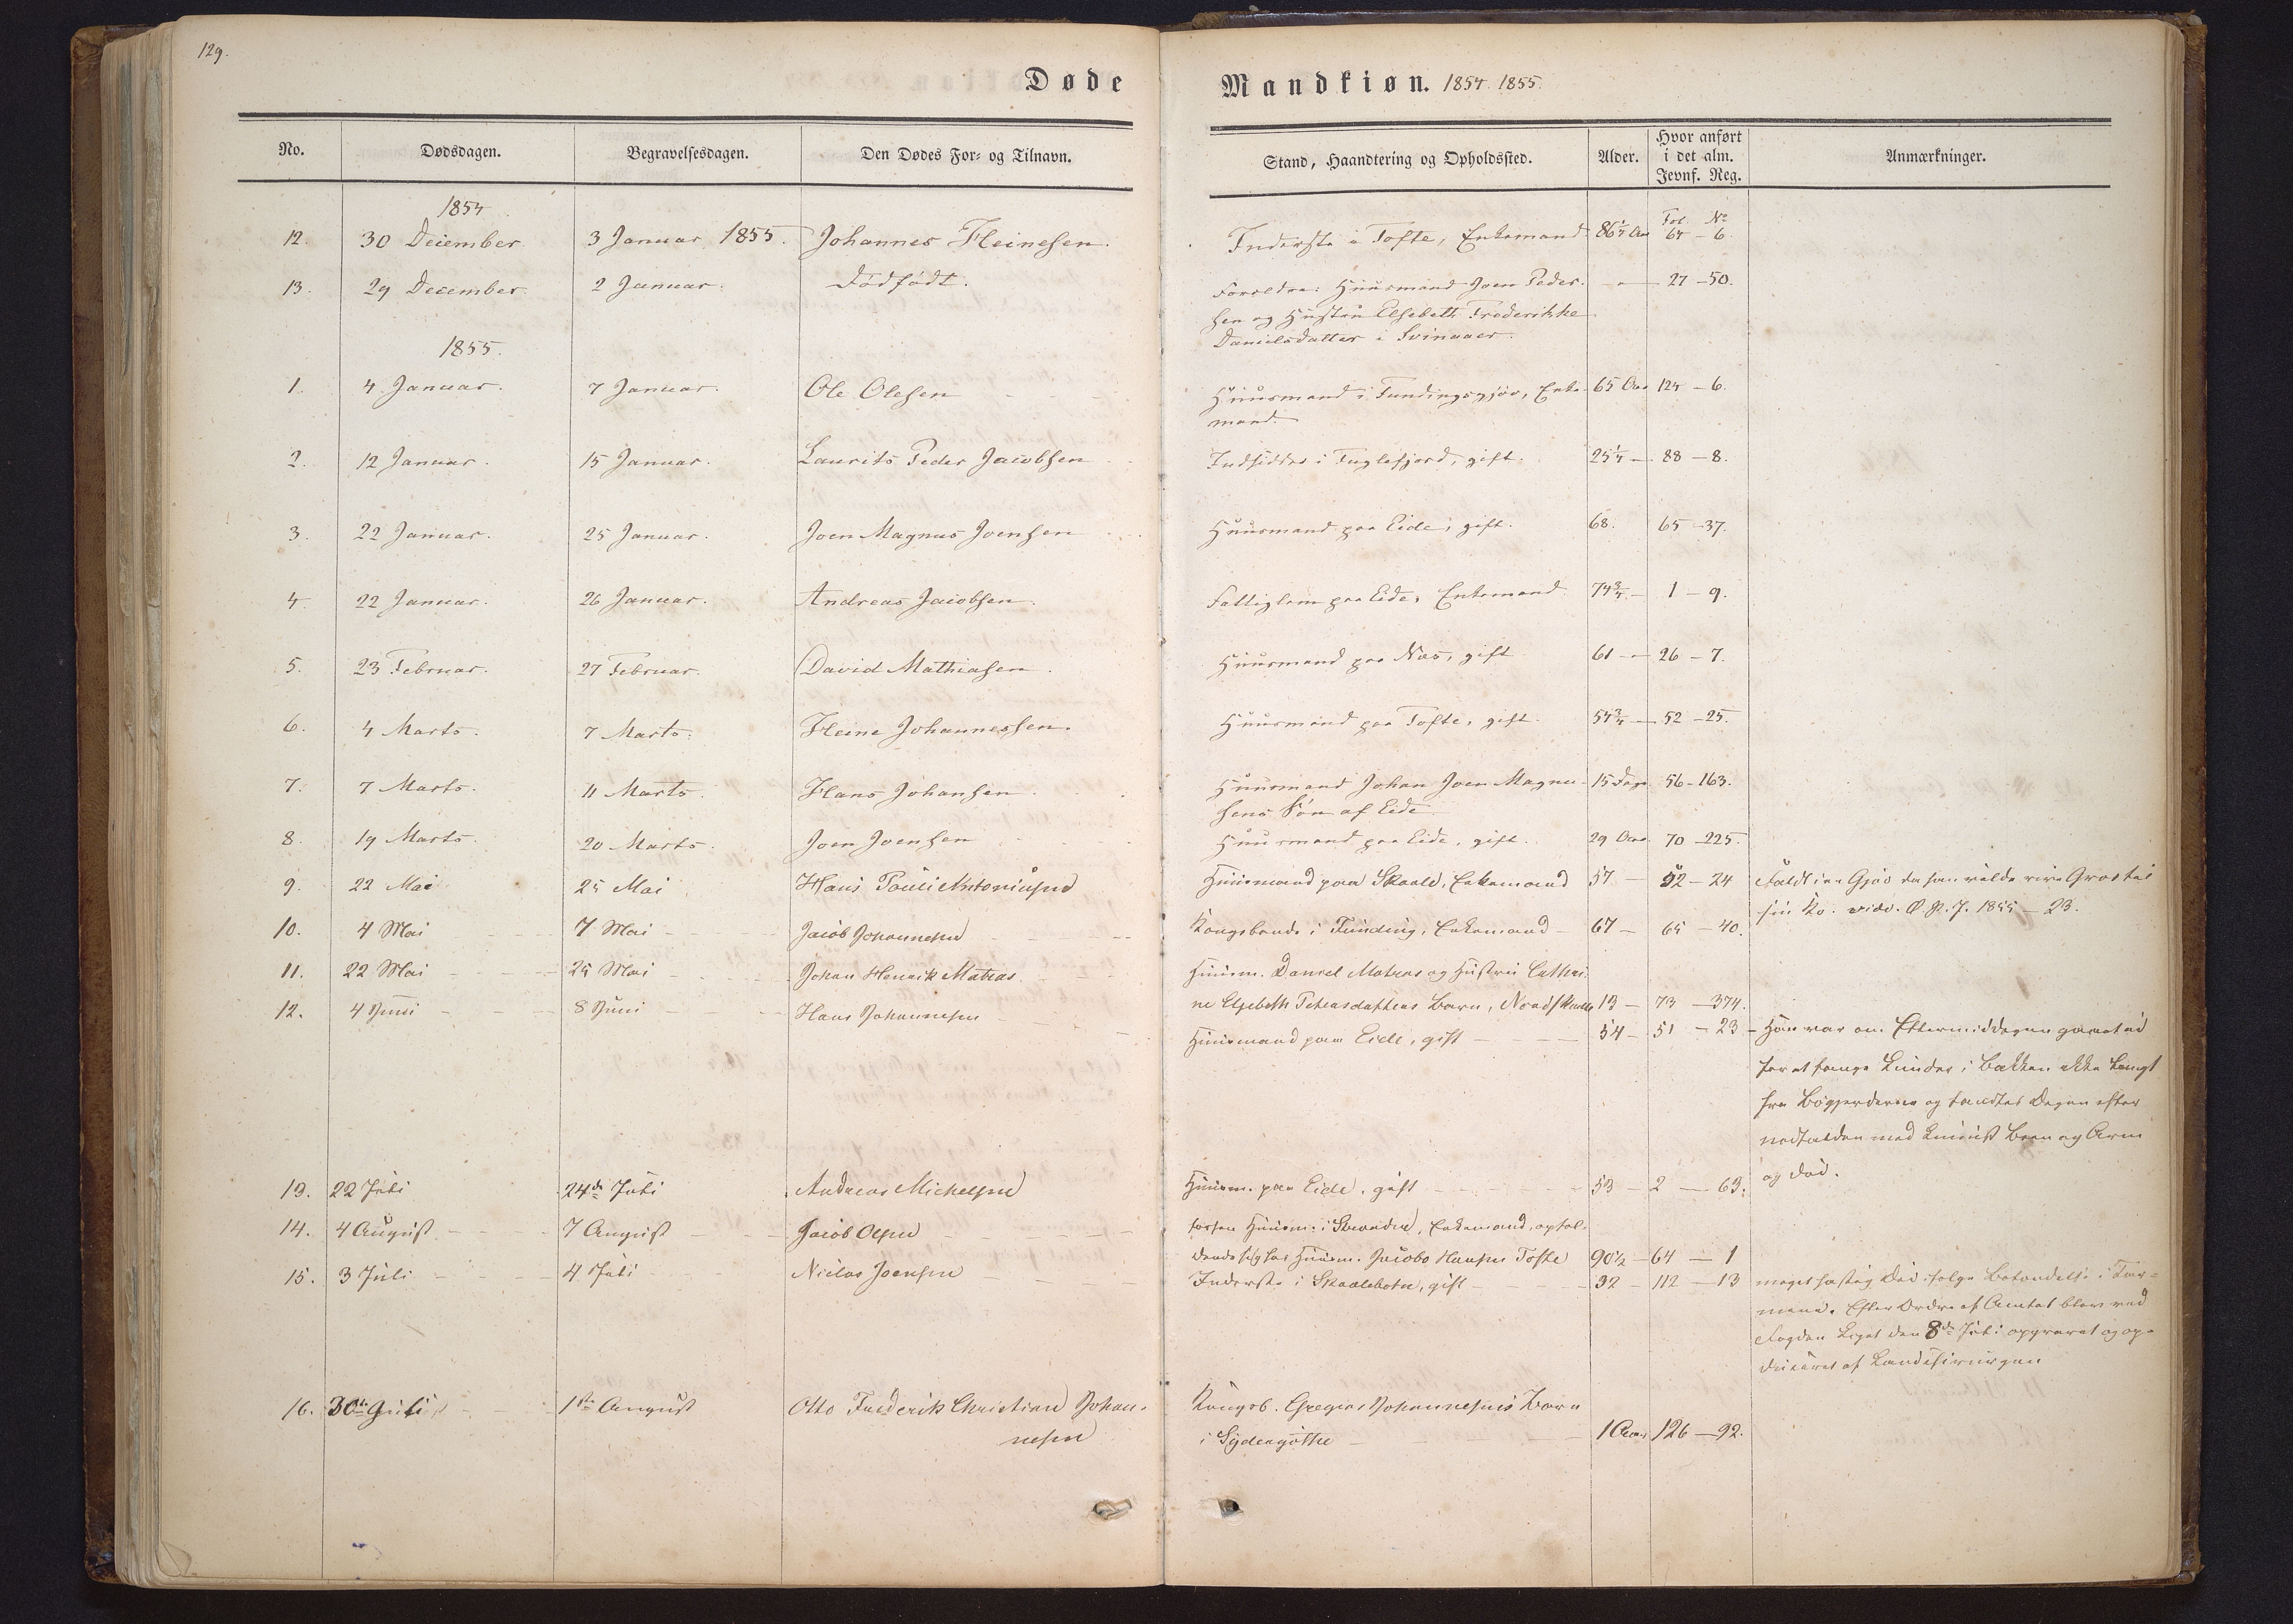 129.
Døde
Mandkiøn. 1854. 1855.
No.
Dødsdagen.
Begravelsesdagen.
Den Dødes For- og Tilnavn.
Stand, Haandtering og Opholdssted.
Alder.
Hvor anført
i det alm.
Jevnf. Reg.
Anmærkninger.
1854
Fol No
12. 30 December. 3 Januar 1855. Johannes Heinesen. Inderste i Tofte, Enkemand 86 1/4 Aar 64 - 6.
13. 29 December. 2 Januar. Dødfødt. Foreldre: Huusmand Joen Peder- 27 - 50.
sen og Hustru Elsebeth Frederikke
Danielsdatter i Svinaaer.
1855.
1. 4 Januar. 7 Januar. Ole Olesen Huusmand i Fundingsgjov, Enke- 65 Aar 124 - 6.
mand.
2. 12 Januar. 15 Januar. Laurits Peder Jacobsen Indsidder i Fuglefjord, gift. 25 1/4 - 88 - 8.
3. 22 Januar. 25 Januar. Joen Magnus Joensen Huusmand paa Eide, gift. 68. 65 - 37.
4. 22 Januar. 26 Januar. Andreas Jacobsen. Fattiglem paa Eide, Enkemand 74 3/4 - 1 - 9.
5. 23 Februar. 27 Februar. David Mathiasen. Huusmand paa Næs, gift 61 - 26 - 7.
6. 4 Marts. 7 Marts. Heine Johannessen. Huusmand paa Tofte, gift. 54 3/4 - 52 - 25.
7. 7 Marts. 11 Marts. Hans Johansen. Huusmand Johan Joen Magnu- 15 Dage 56 - 163.
sens Søn af Eide
8. 19 Marts. 20 Marts. Joen Joensen Huusmand paa Eide, gift. 29 Aar 70 - 225.
9. 22 Mai 25 Mai Hans Pauli Antoniusen Huusmand paa Skaale, Enkemand 57 - 52 - 24 Faldt i en Gjov da han vilde rive Græs til
sin Ko. 1855 - 23.
10. 4 Mai 7 Mai Jacob Johannesen Kongsbonde i Funding, Enkemand - 67 - 65 - 40.
11. 22 Mai 25 Mai Johan Henrik Matras Huusm. Daniel Matras og Hustru Cathri-
ne Elsebeth Petersdatters Barn, 13 - 73 - 374.
12. 4 Juni 8 Juni Hans Johannesen Huusmand paa Eide, gift 54 - 51 - 23 - Han var om Eftermiddagen gaaet ud
for at fange Lunder i Bakken ikke langt
fra Bøgjerderne og fandtes Dagen efter
nedfalden med knuust Been og Arm
og død.
13. 22 Juli 24de Juli Andreas Michelsen Huusm. paa Eide, gift 53 - 2 - 63.
14. 4 August 7 August Jacob Olsen forhen Huusm. i Enkemand, ophol-
dende sig hos Huusm. Jacob Hansen Tofte 90 1/2 - 64 - 1
15. 3 Juli 4 Juli Niclas Joensen Inderste i Skaalebotn, gift 32 - 112 - 13 meget hastig Død ifølge Betændelse i Tar-
mene. Efter Ordre af Amtet blev ved
Fogden Liget den 8de Juli opgravet og op-
af Landchirurgen
16. 30te Juli 1ste August Otto Frederik Christian Johan- Kongsb. Gregers Johannesens Barn
nesen i Sydergøthe 1 Aar 126 - 92.